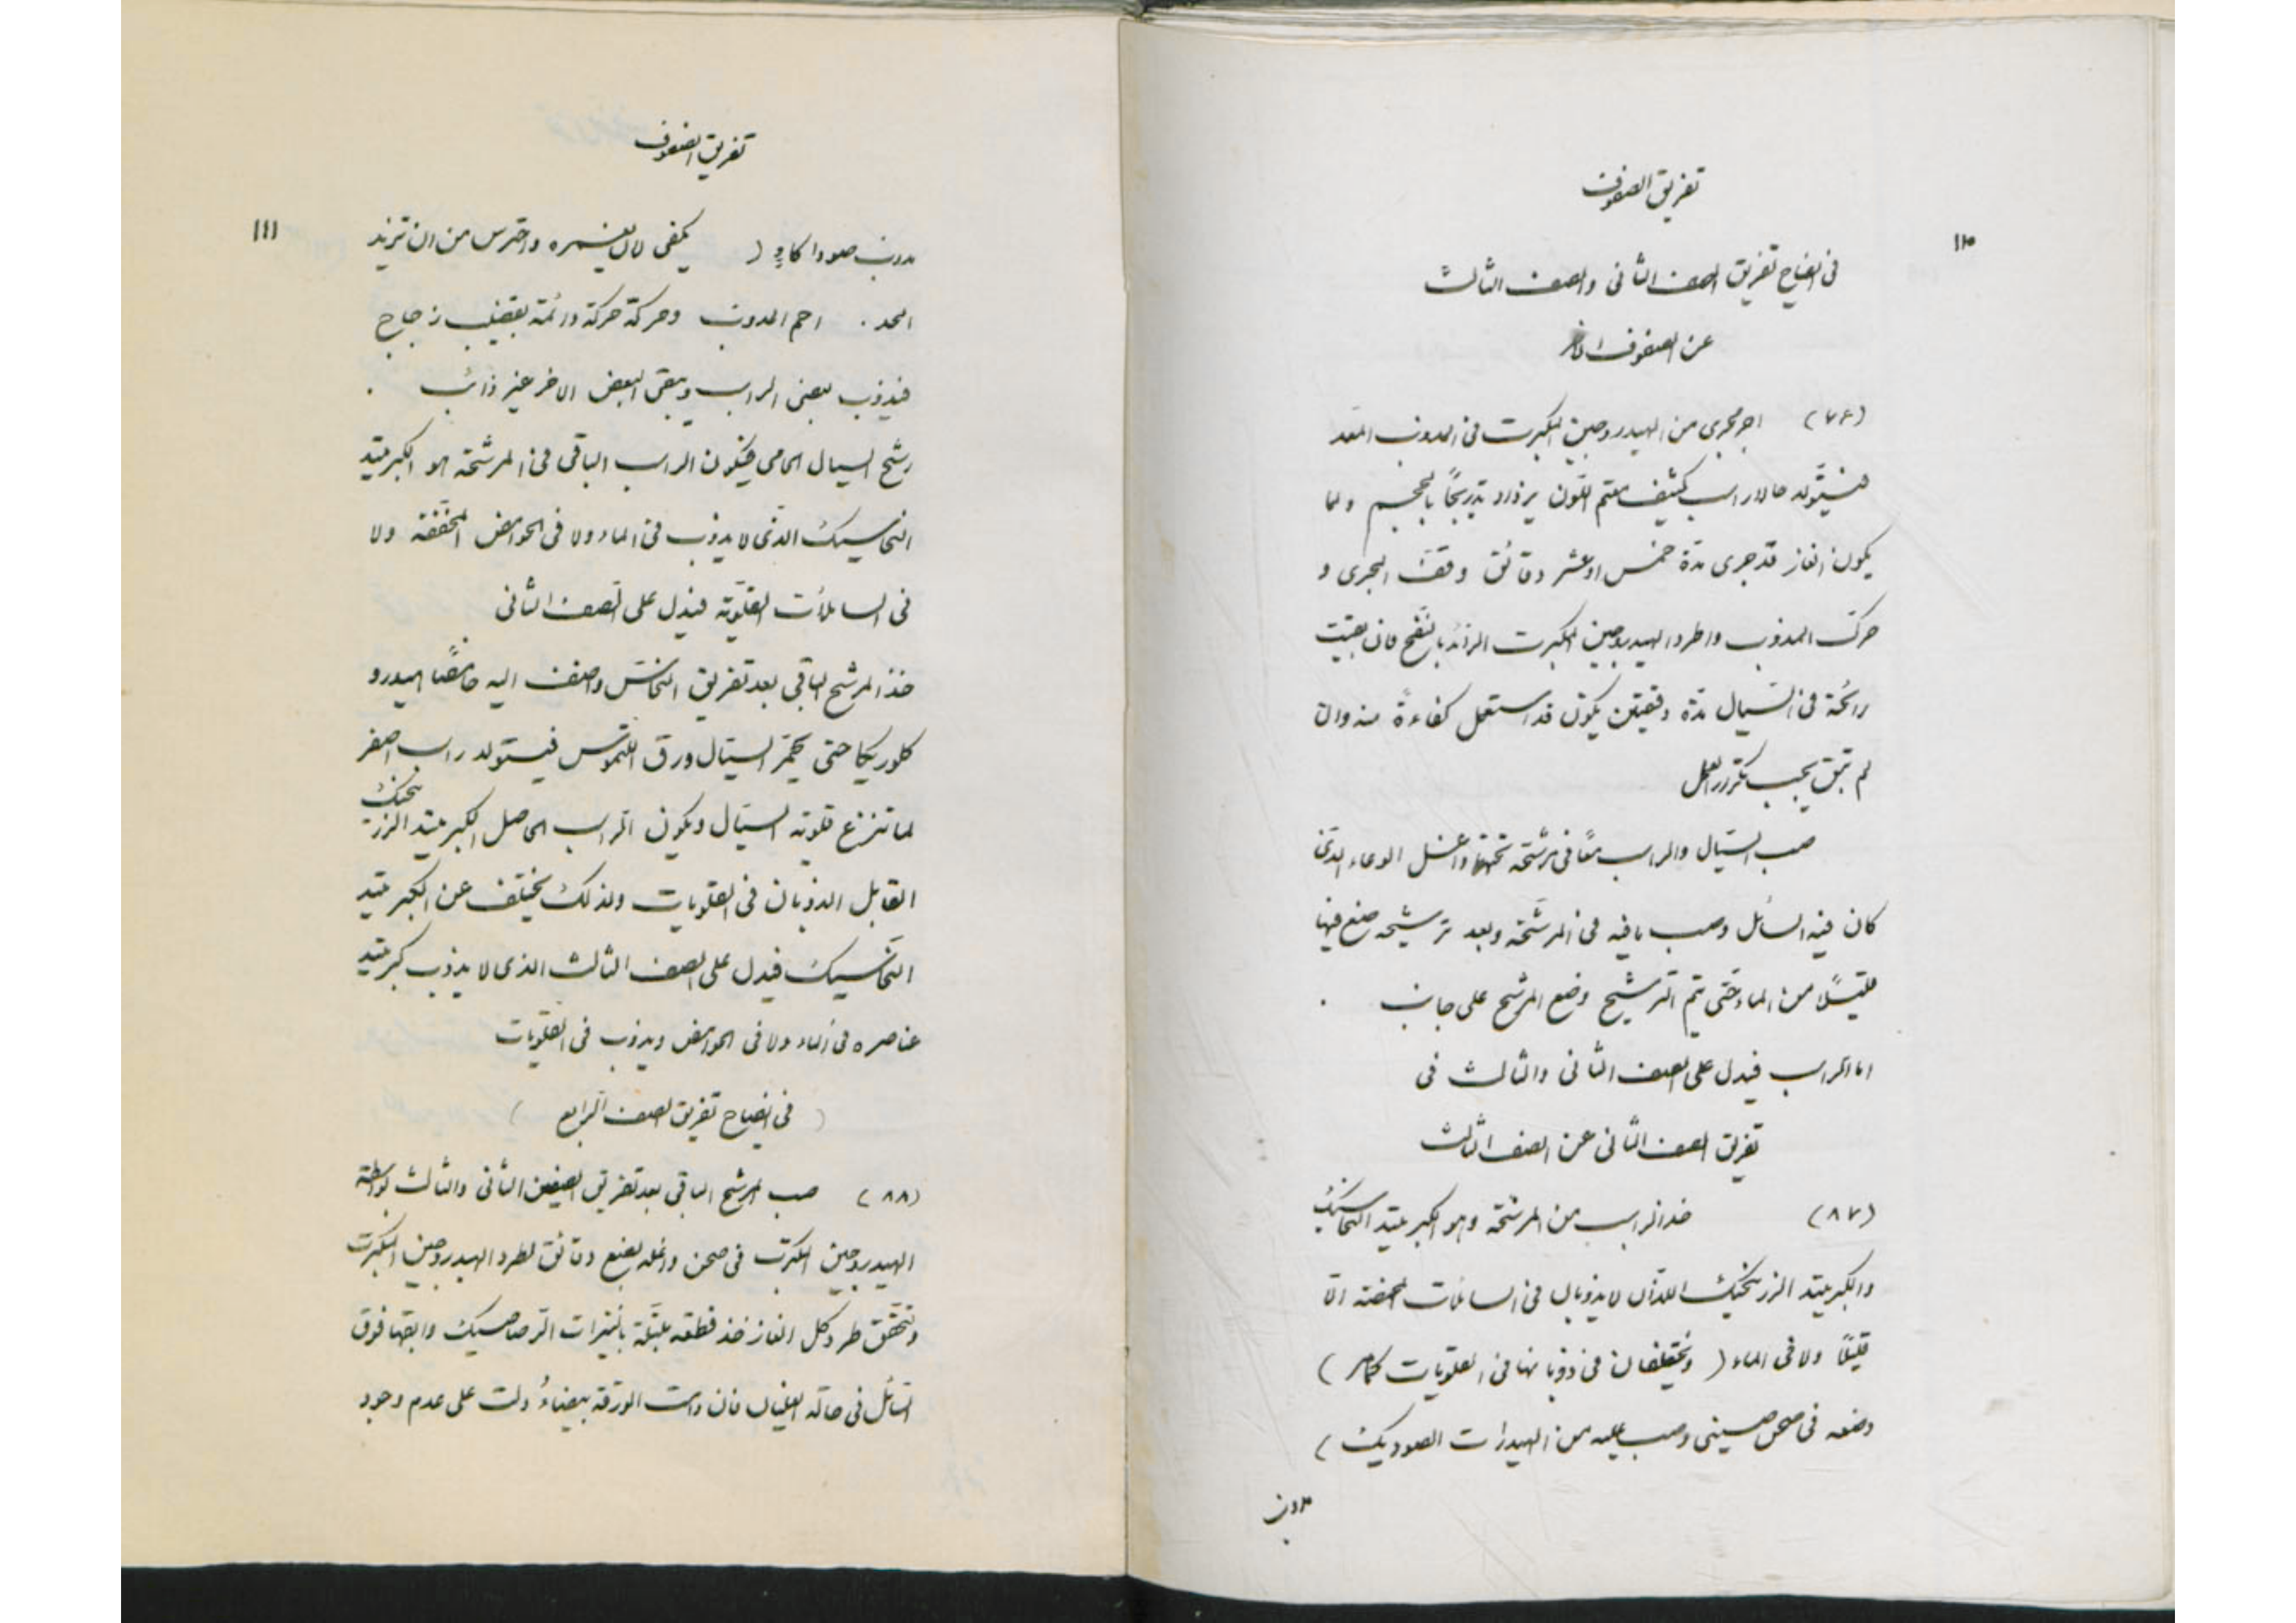 تفريق الصفوف
١١٠
فى ايضاح تفريق الصف الثانى والصف الثالث
عن الصفوف الاخر
(٧٦) اجر مجرى من الهيدروجين المكبرت فى المذوب المعد
فيتولد حالا راسب كثيف معتم اللون يزداد تدريجًا بالحجم ولما
يكون الغاز قد جرى مدة خمس او عشر دقائق وقف المجرى و
حرك المذوب واطرد الهيدروجين المكبرت الزائد بالنفخ فان بقيت
رائحة فى السيال مدة دقيقتين يكون قد استعمل كفاءة منه والا
لم تبق يجب تكرر العمل
صب السيال والراسب معًا فى مرشحة تحتها واغسل الوعاء الذى
كان فيه السائل وصب مافيه فى المرشحة وبعد ترشيحه ضع فيها
قليلًا من الماء حتى يتم الترشيح وضع المرشح على جانب .
اما الراسب فيدل على الصف الثانى والثالث فى
تفريق الصف الثانى عن الصف الثالث
(٨٧) خذ الراسب من المرشحة وهو الكبريتيد النحاسيك
والكبريتيد الزرنيخيك اللذان لايذوبان فى السائلات المحمضة الا
قليلًا ولا فى الماء ( ويختلفان فى ذوبانها فى القلويات كمامر )
وضعه فى صحن صينى وصب عليه من الهيدرات الصوديك )
مذوب
تفريق الصفوف
١١١
مذوب صودا كاو ) يكفى لان يغمره واحترس من ان تزيد
الحد . احم المذوب وحركه حركة دائمة بقضيب زجاج
فيذوب بعض الراسب ويبقى البعض الاخر غير ذائب .
رشح السيال الحامى فيكون الراسب الباقى فى المرشحة هو الكبريتيد
النحاسيك الذى لا يذوب فى الماء ولا فى الحوامض المخففة ولا
فى السائلات القلوية فيدل على الصف الثانى
خذ المرشح الباقى بعد تفريق النحاس واضف اليه حامضًا هيدرو
كلوريكا حتى يحمّر السيال ورق اللتموس فيتولد راسب اصفر
لما تنزع قلوية السيال ويكون الراسب الحاصل الكبريتيد الزرنيخيك
القابل الذوبان فى القلويات ولذلك يختلف عن الكبريتيد
النحاسيك فيدل على الصف الثالث الذى لا يذوب كبريتيد
عناصره فى الماء ولا فى الحوامض ويذوب فى القلويات
( فى ايضاح تفريق الصف الرابع )
(٨٨) صب المرشح الباقى بعد تفريق الصفين الثانى والثالث بواسطة
الهيدروجين المكبرت فى صحن واغله بضع دقائق لطرد الهيدروجين المكبرت
ولتحقق طرد كل الغاز خذ قطعة مبتلة بالنيترات الرصاصيك وابقها فوق
السائل فى حالة الغليان فان دامت الورقة بيضاءُ دلت على عدم وجود